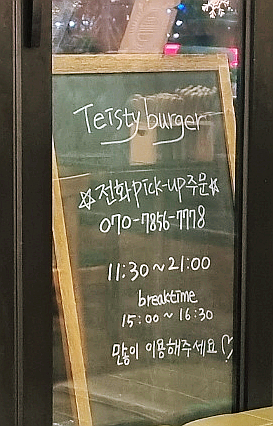 Teisty burger
☆전화 pick-up 주문☆
070-7856-7778
11:30~21:00
breaktime
15:00~16:30
많이 이용해주세요♡